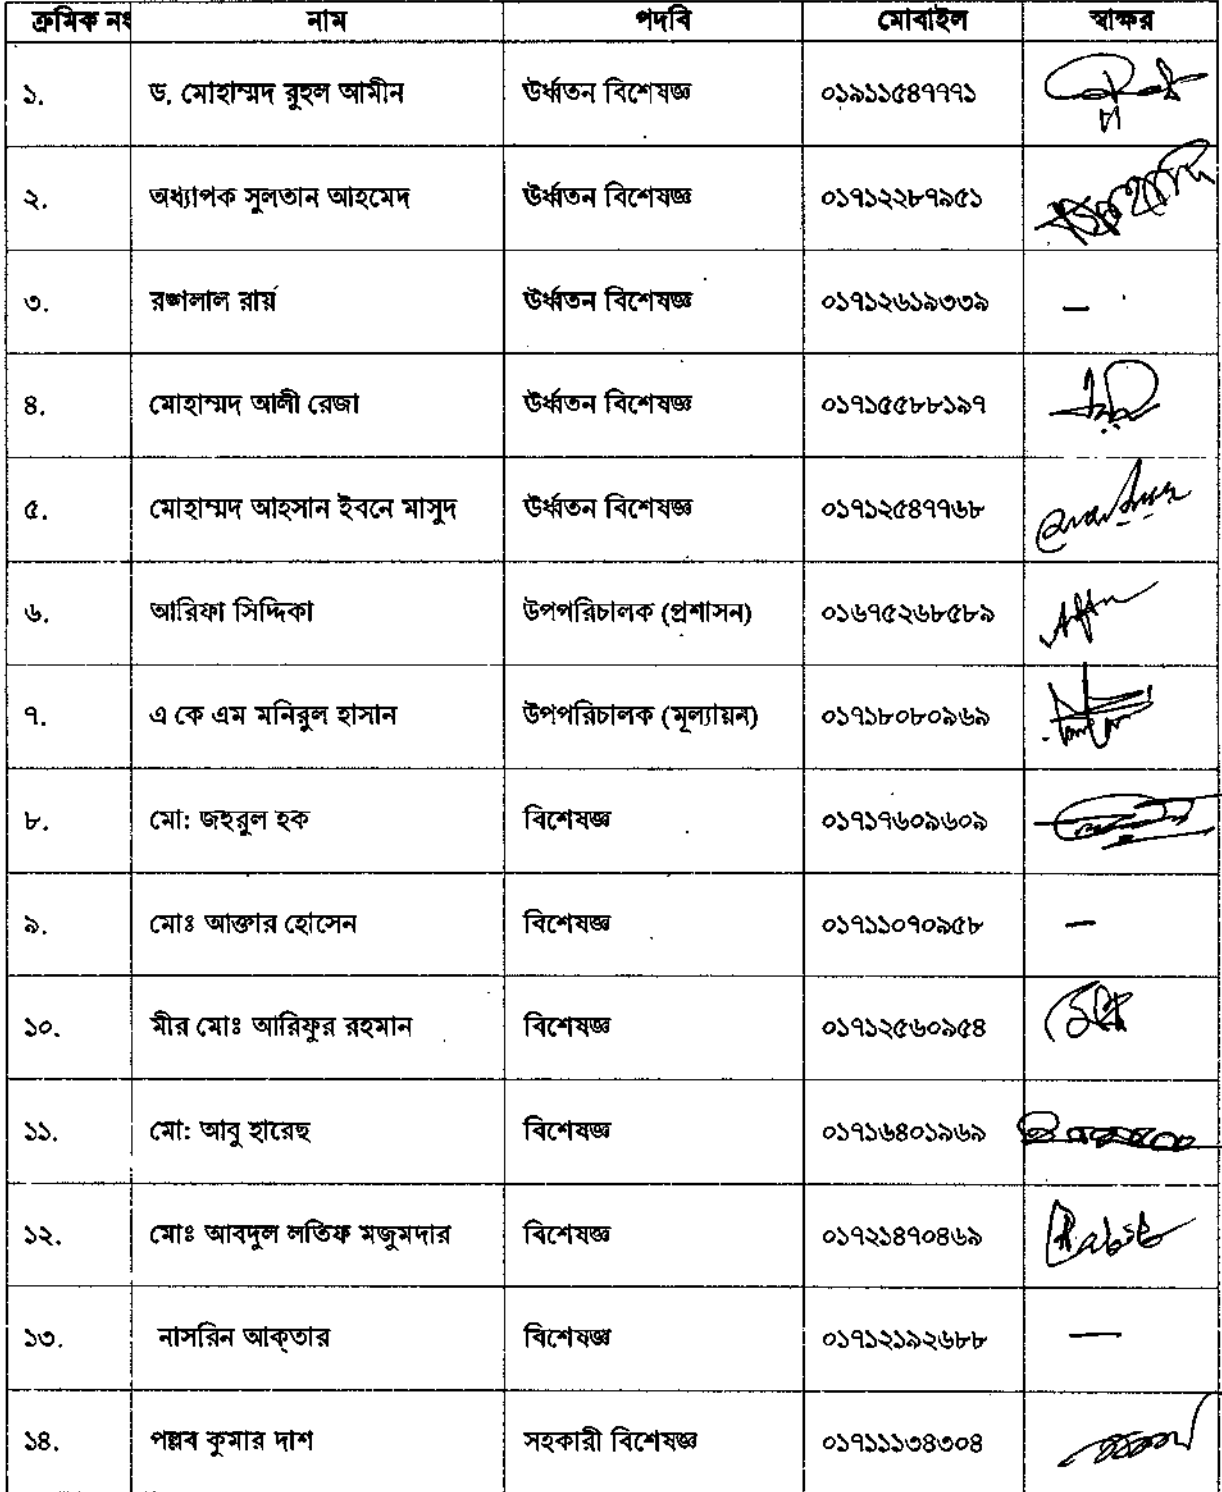 ক্রমিক নং নাম পদবি মোবাইল স্বাক্ষর
১. ড. মোহাম্মদ রুহুল আমীন উর্ধ্বতন বিশেষজ্ঞ ০১৯১১৫৪৭৭৭১
২. অধ্যাপক সুলতান আহমেদ উর্ধ্বতন বিশেষজ্ঞ ০১৭১২২৮৭৯৫১
৩. রঙ্গলাল রায় উর্ধ্বতন বিশেষজ্ঞ ০১৭১২৬১৯৩৩৯ –
৪. মোহাম্মদ আলী রেজা উর্ধ্বতন বিশেষজ্ঞ ০১৭১৫৫৮৮১৯৭
৫. মোহাম্মদ আহসান ইবনে মাসুদ উর্ধ্বতন বিশেষজ্ঞ ০১৭১২৫৪৭৭৬৮
৬. আরিফা সিদ্দিকা উপপরিচালক (প্রশাসন) ০১৬৭৫২৬৮৫৮৯
৭. এ কে এম মনিরুল হাসান উপপরিচালক (মূল্যায়ন) ০১৭১৮০৮০৯৬৯
৮. মো: জহুরুল হক বিশেষজ্ঞ ০১৭১৭৬০৯৬০৯
৯. মোঃ আক্তার হোসেন বিশেষজ্ঞ ০১৭১১০৭০৯৫৮ –
১০. মীর মোঃ আরিফুর রহমান বিশেষজ্ঞ ০১৭১২৫৬০৯৫৪
১১. মো: আবু হারেছ বিশেষজ্ঞ ০১৭১৬৪০১৯৬৯
১২. মোঃ আবদুল লতিফ মজুমদার বিশেষজ্ঞ ০১৭২১৪৭০৪৬৯
১৩. নাসরিন আক্‌তার বিশেষজ্ঞ ০১৭১২১৯২৬৮৮ –
১৪. পল্লব কুমার দাশ সহকারী বিশেষজ্ঞ ০১৭১১১৩৪৩০৪